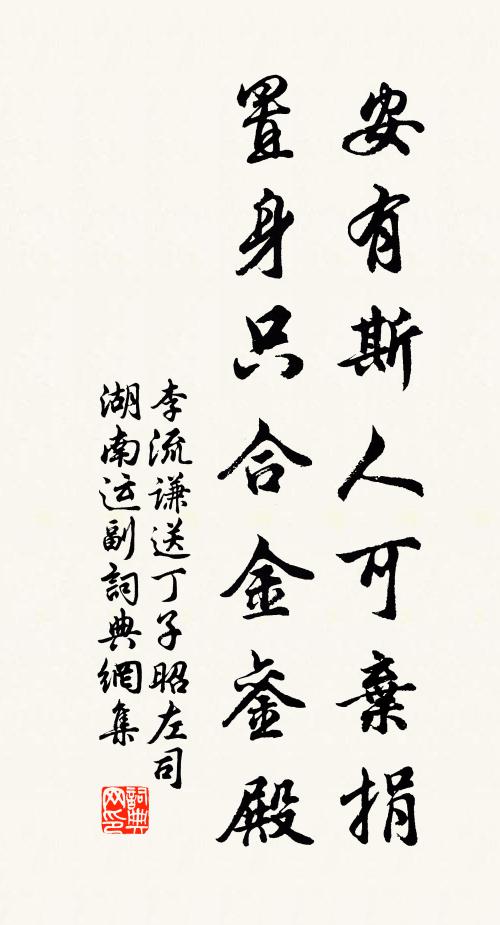 安有斯人可棄捐
置身只合金鑾殿
李流謙送丁子昭左司
湖南运副詞典網集
詞典网印